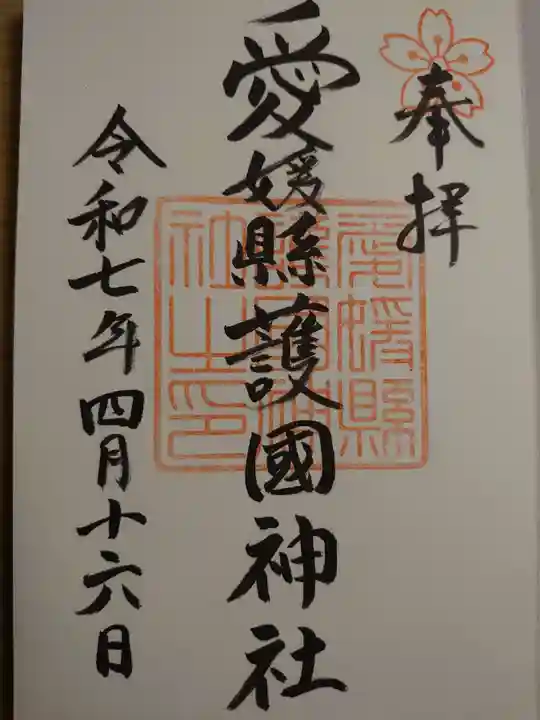 奉拝
愛媛縣護國神社
愛媛縣護國神社之印
令和七年四月十六日